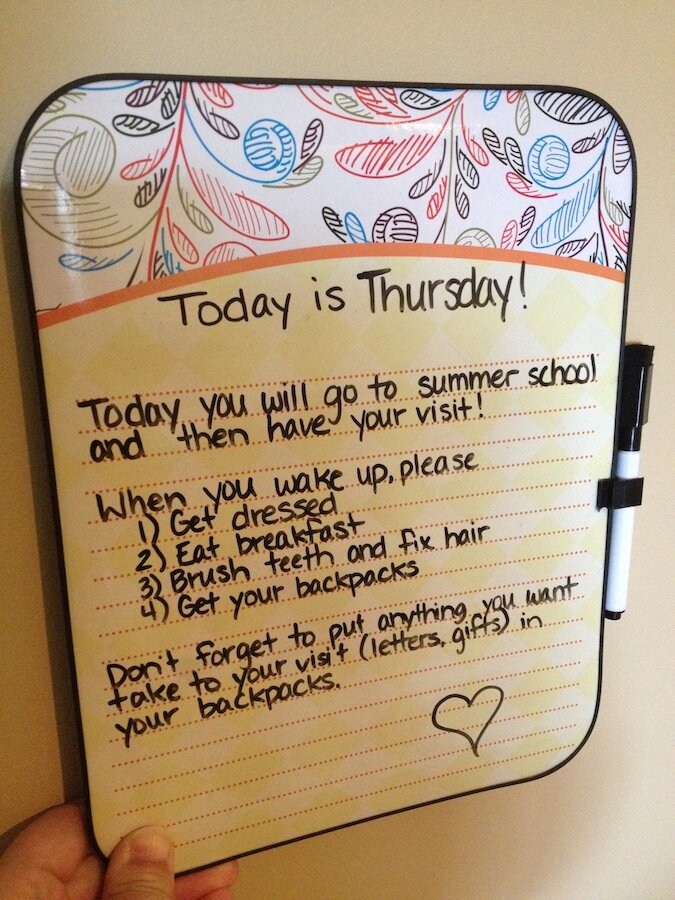 Today is Thursday!
Today you will go to summer school
and then have your visit!
When you wake up, please
1) Get dressed
2) Eat breakfast
3) Brush teeth and fix hair
4) Get your backpacks
Don't forget to put anything you want
take to your visit (letters, gifts) in
your backpacks.